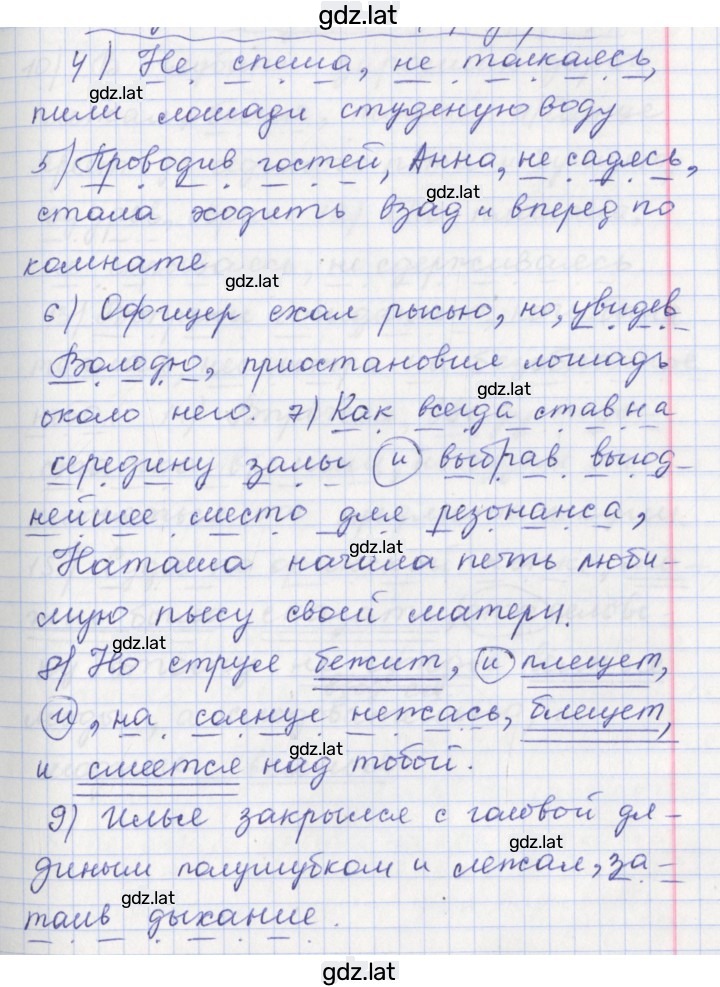 gdz.lat
4) Не спеша, не толкаясь,
gdz.lat
пили лошади студеную воду
5) Проводив гостей, Анна, не садясь,
gdz.lat
стала ходить взад и вперед по
комнате
gdz.lat
6) Офицер ехал рысью, но, увидев
Володю, приостановил лошадь
gdz.lat
около него. 7) Как всегда став на
середину залы и выбрав выгод-
нейшее место для резонанса,
gdz.lat
Наташа начила петь люби-
мую пьесу своей матери.
gdz.lat
8) Но струя бежит, и плещет,
и, на солнце нежась, блещет,
gdz.lat
и смеется над тобой.
9) Илья закрылся с головой дя-
gdz.lat
диным полушубком и лежал, за-
gdz.lat
таив дыхание.
gdz.lat